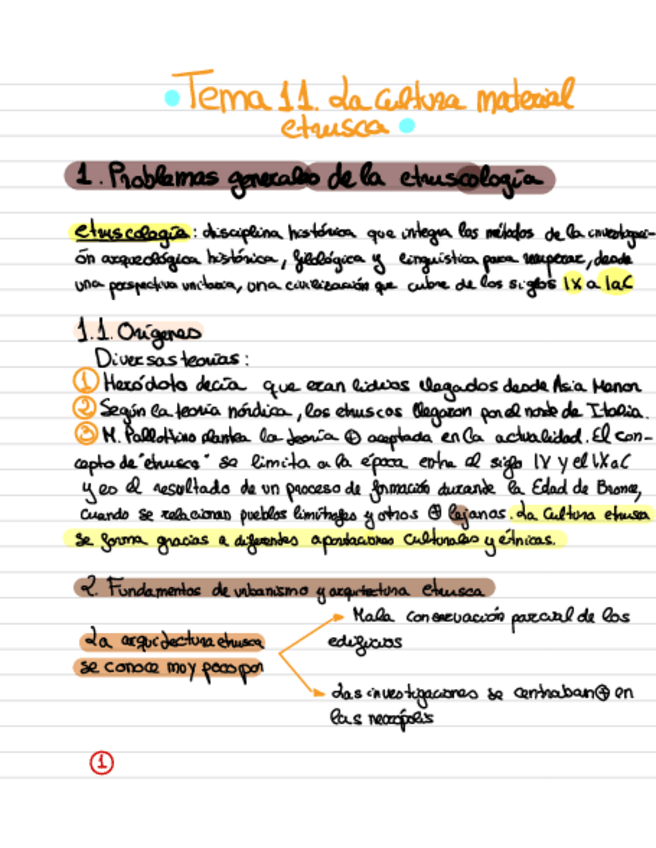 Tema 11. La cultura material
etrusca
1. Problemas generales de la etruscología
etruscología: disciplina histórica que integra los métodos de la investigaci-
ón arqueológica histórica, filológica y lingüística para recuperar, desde
una perspectiva unitaria, una civilización que cubre de los siglos IX a IaC
1.1. Orígenes
Diversas teorías:
① Heródoto decía que eran lidios llegados desde Asia Menor
② Según la teoría nórdica, los etruscos llegaron por el norte de Italia.
③ M. Pallottino plantea la teoría ⊕ aceptada en la actualidad. El con-
cepto de "etrusco" se limita a la época entre el siglo IV y el IXaC
y es el resultado de un proceso de formación durante la Edad de Bronce,
cuando se relacionan pueblos limítrofes y otros ⊕ lejanos. La Cultura etrusca
se forma gracias a diferentes aportaciones culturales y étnicas.
2. Fundamentos de urbanismo y arquitectura etrusca
Mala conservación parcial de los
edificios
La arquitectura etrusca
se conoce muy poco por
Las investigaciones se centraban ⊕ en
las necrópolis
①